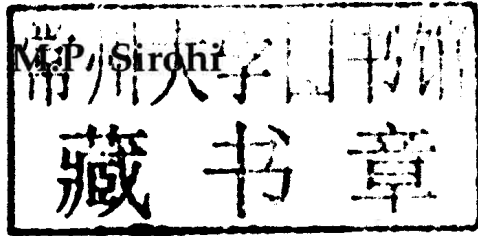 M.P. Sirohi
常州大学图书馆
藏书章